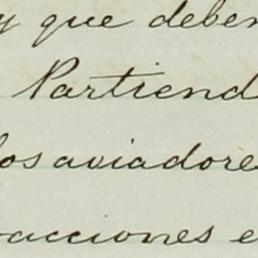 y que deben
Partiend
los aviadore
acciones e